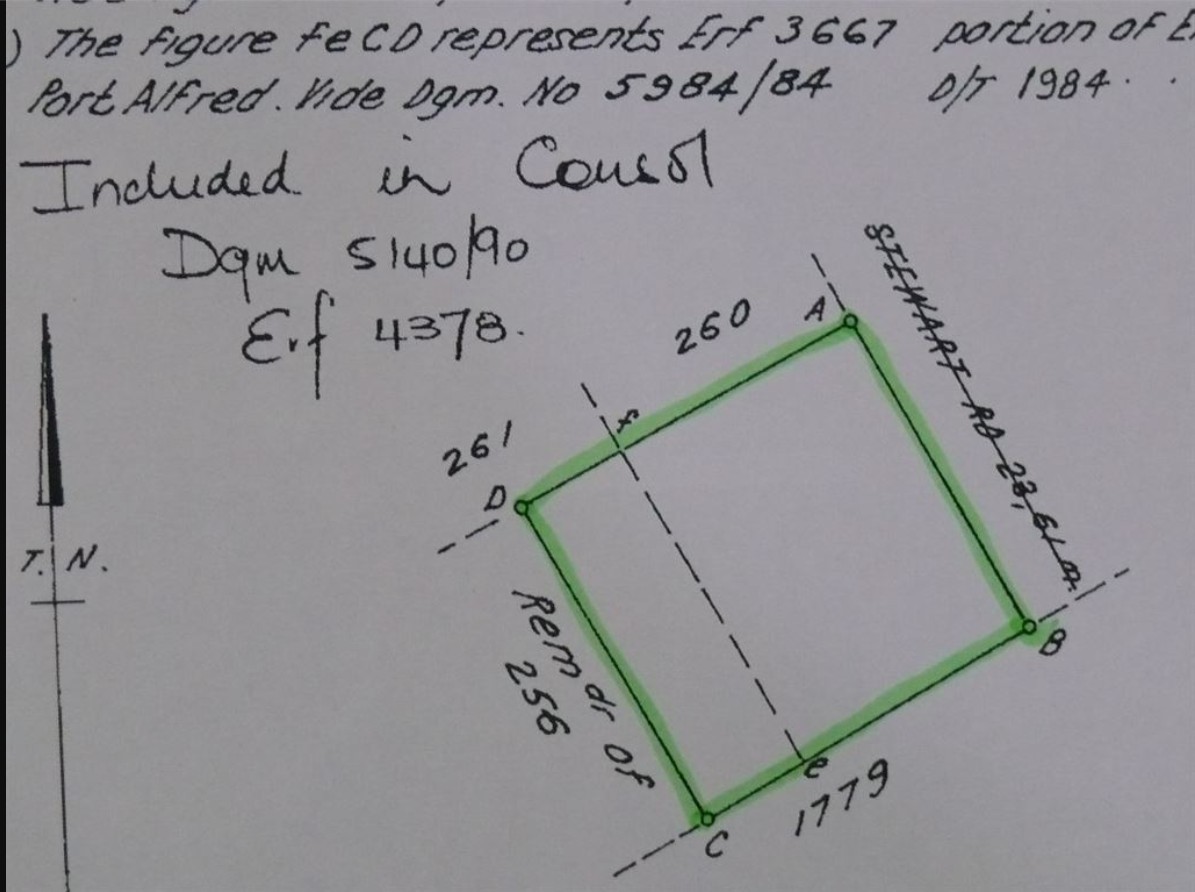 ) The figure feCD represents Erf 3667 portion of
Port Alfred. Vide Dgm. No 5984/84 D/T 1984.
Included in Consol
Dgm 5140/90
Erf 4378.
STEWART RD 23,61 m.
260
A
f
261
D
T. N.
Remdr of
256
B
e
1779
C